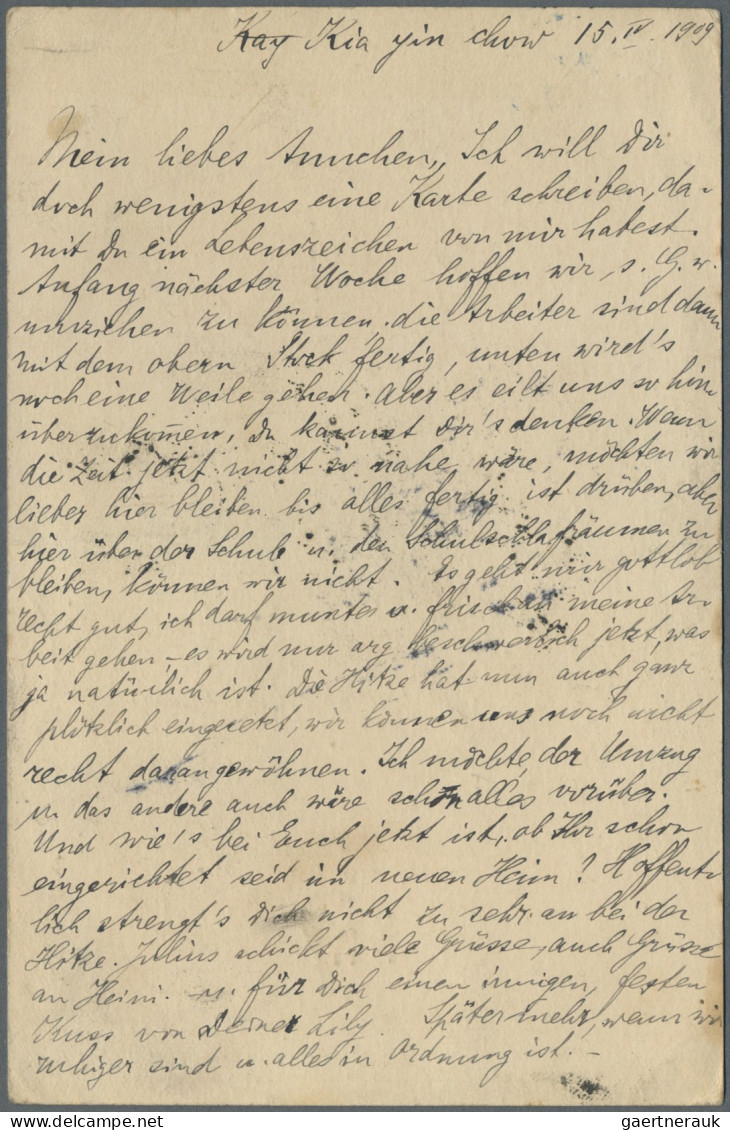 Kay Kia yin chow 15. IV. 1909
Mein liebes Annchen, Ich will Dir
doch wenigstens eine Karte schreiben, da-
mit Du ein Lebenszeichen von mir habest.
Anfang nächster Woche hoffen wir, s. G. w.
umziehen zu können, die Arbeiter sind dann
mit dem obern Stock fertig, unten wird's
noch eine Weile gehen. Aber es eilt uns so hin-
überzukom̅en, Du kannst Dir's denken. Wenn
die Zeit jetzt nicht so nahe wäre, möchten wir
lieber hier bleiben bis alles fertig ist drüben, aber
hier über der Schule u. den Schulschlafräumen zu
bleiben, können wir nicht. Es geht mir gottlob
recht gut, ich darf munter u. frisch an meine Ar-
beit gehen, - es wird nur arg beschwerlich jetzt, was
ja natürlich ist. Die Hitze hat nun auch ganz
plötzlich eingesetzt, wir können uns noch nicht
recht darangewöhnen. Ich möchte, der Umzug
u. das andere auch wäre schon alles vorüber.
Und wie's bei Euch jetzt ist, ob Ihr schon
eingerichtet seid im neuen Heim? Hoffent-
lich strengt's Dich nicht zu sehr an bei der
Hitze. Julius schickt viele Grüsse, auch Grüsse
an Heini. - u. für Dich einen innigen, festen
Kuss von Deiner Lily. Später mehr, wenn wir
ruhiger sind u. alles in Ordnung ist. -
gaertnerauk